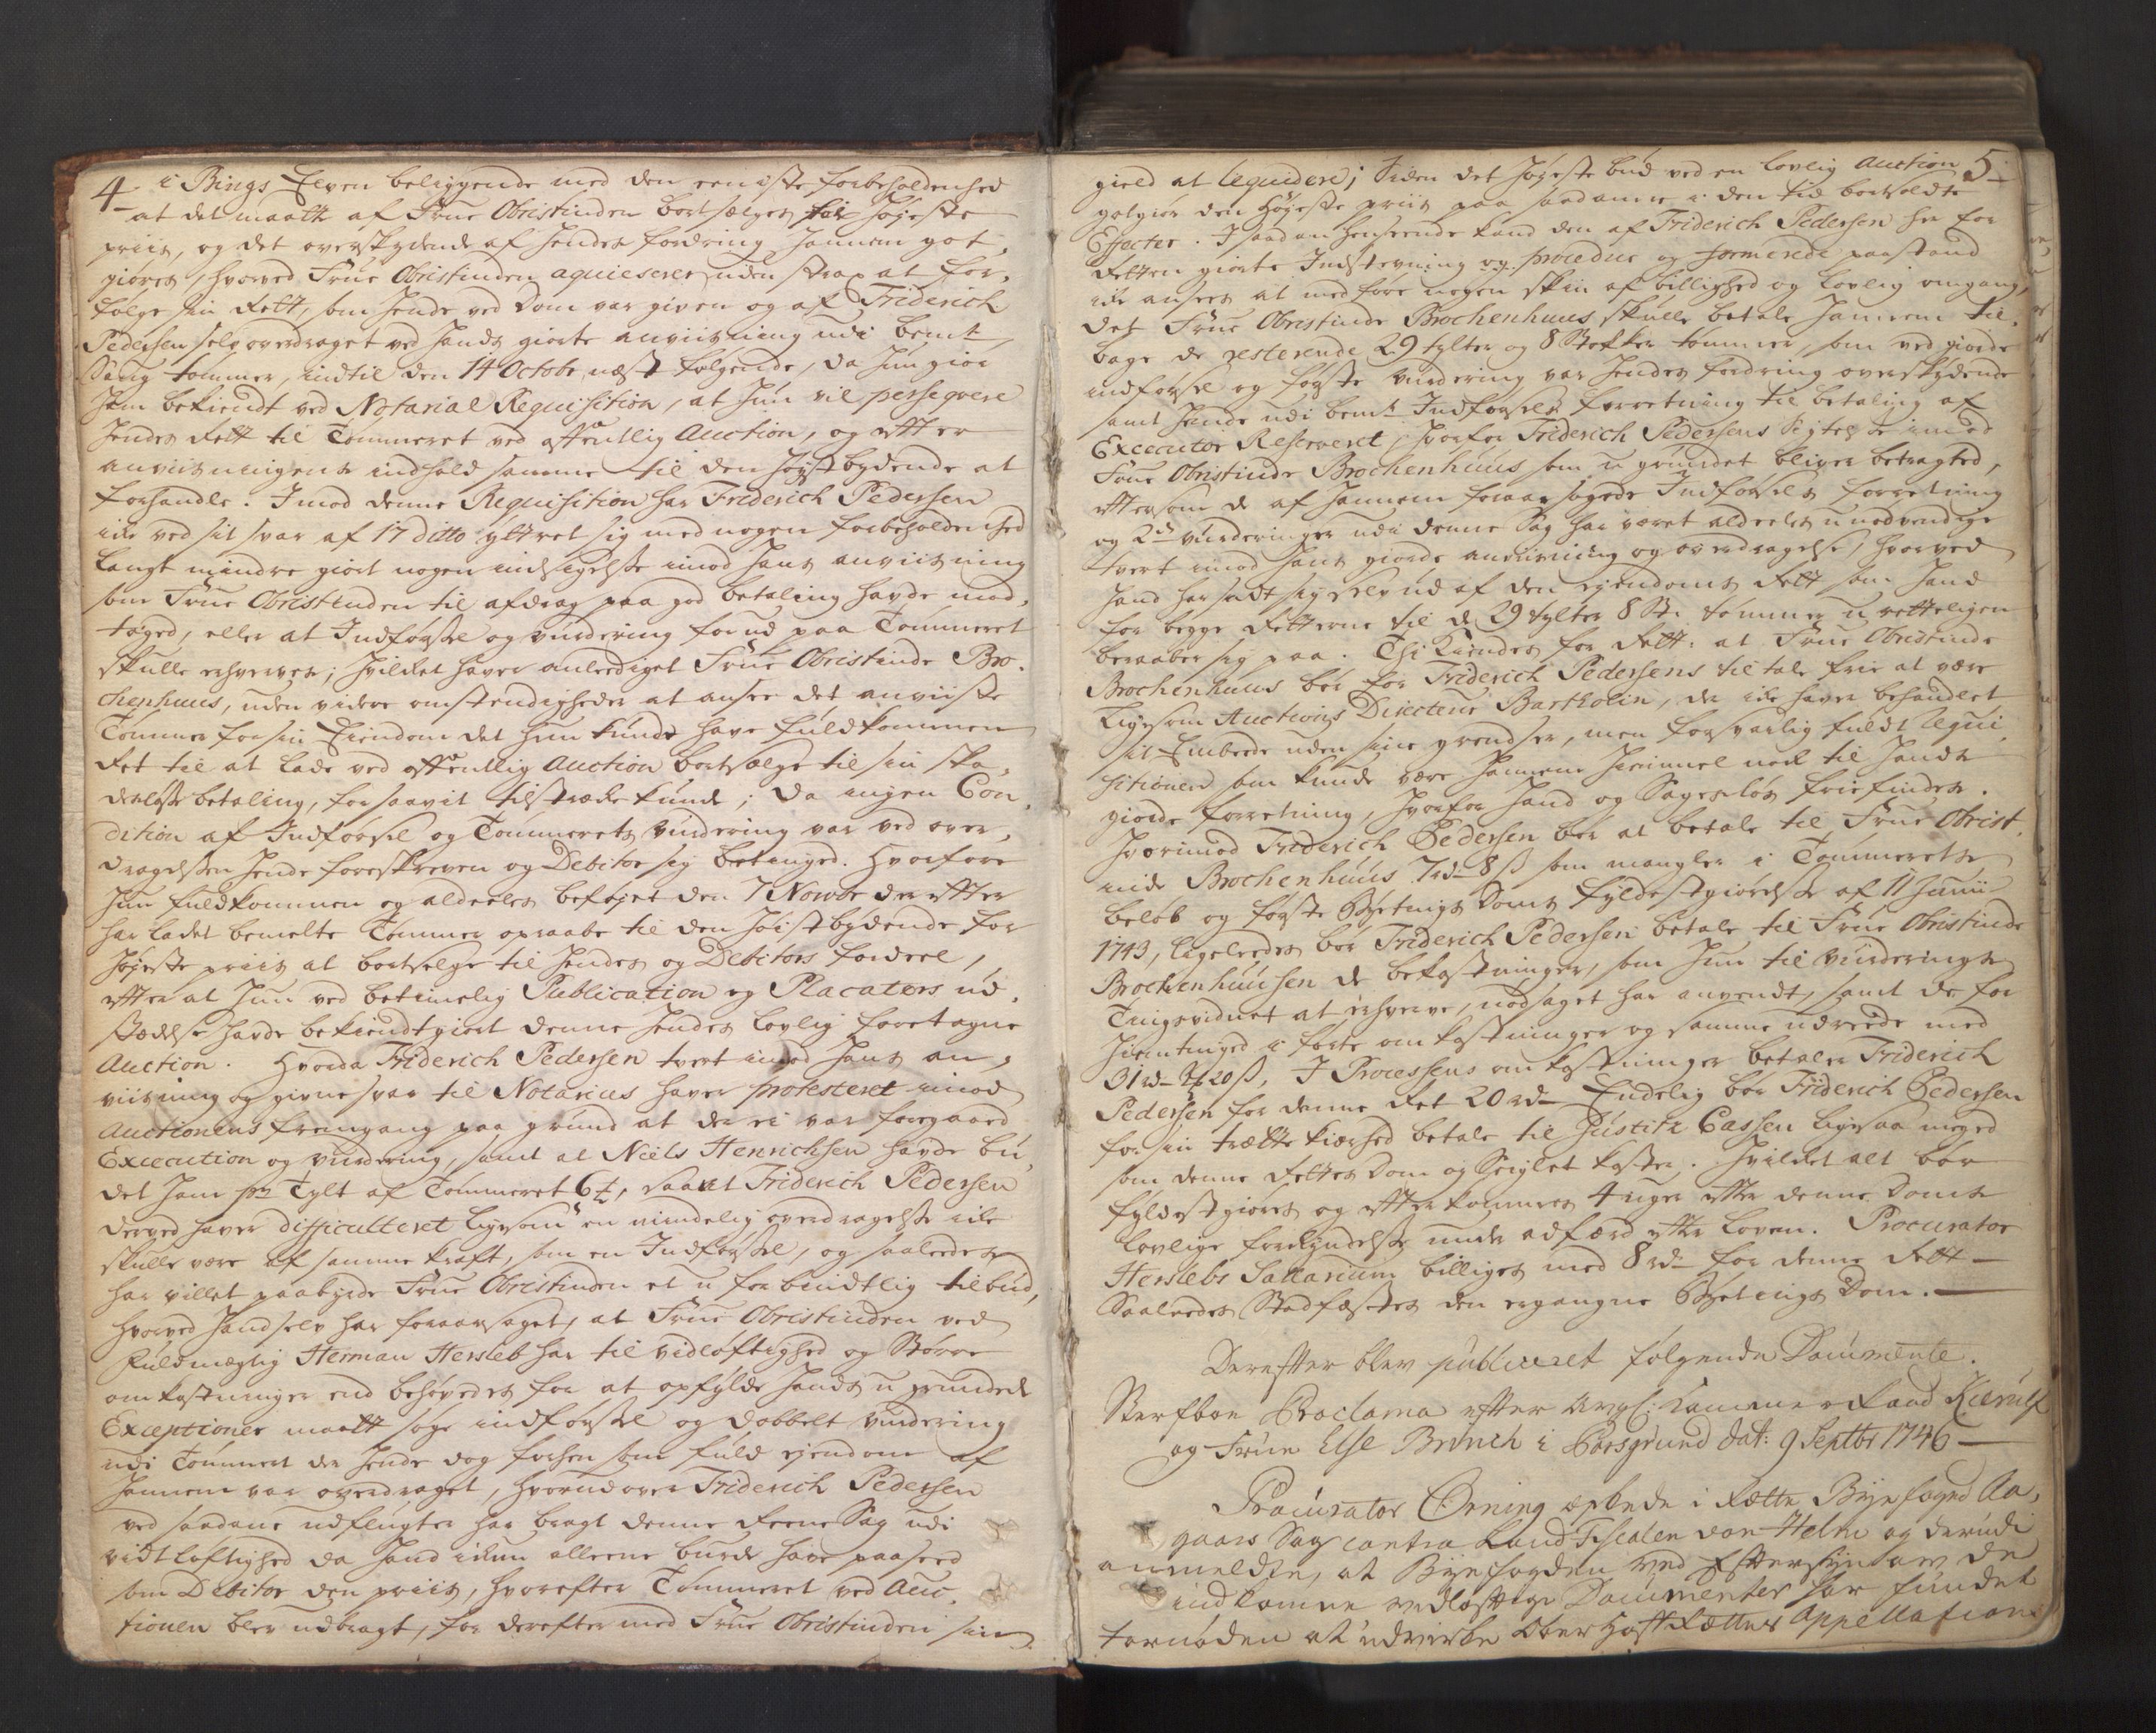 4
i Bings Elven beliggende med den eeniste forbeholdenhed
at det maatte af Frue Obristinden bortsælges for høyeste
priis, og det overskydende af hendes fordring hannem got-
giøres, hvorved Frue Obristinden aquiescerer uden strax at for-
følge sin Rett, som hende ved Dom var given og af Friderich
Pedersen selv overdraget ved hands giorte anviisning udi bemte
Saug tømmer, indtil den 14 Octobr næst følgende, da hun giør
ham bekiendt ved Notarial Requisition, at hun vil persegvere
hendes Rett til Tømmeret ved offentlig Auction, og efter
anviisningens indhold samme til den høystbydende at
forhandle. Imod denne Requisition har Friderich Pedersen
icke ved sit svar af 17 ditto yttret sig med nogen forbeholdenhed
langt mindre giort nogen indsigelse imod hans anviisning
som Frue Obristinden til afdrag paa god betaling havde mod-
taged, eller at Indførsel og vurdering forud paa Tømmeret
skulle erhverves; hvilket haver anlediget Frue Obristinde Bro-
chenhuus, uden videre omstendigheder at ansee det anviiste
Tømmer for sin Eiendom det hun kunde have fuldkommen
Ret til at lade ved offentlig Auction bortsælge til sin ska-
desløse betaling, forsaavit tilstrække kunde; da ingen Con-
dition af Indførsel og Tømmerets vurdering var ved over-
dragelsen hende foreskreven og Debitor sig betinged. Hvorfore
hun fuldkommen og aldeeles beføyet den 7 Novbr derefter
har ladet bemelte Tømmer opraabe til den høistbydende for
høyeste priis at bortselge til hendes og Debitors fordeel,
efter at hun ved betimelig Publication og Placaters ud-
stædelse havde bekiendtgiort denne hendes lovlig foretagne
Auction. Hvorda Friderich Pedersen tvert imod hans an-
viisning og givne svar til Notarius haver protesteret imod
Auctionens fremgang paa grund at der ei var foregaaed
Execution og vurdering, samt at Niels Henrichsen havde bu-
det ham pr Tylt af Tømmeret 6, saa at Friderich Pedersen
derved haver difficulteret ligesom en mindelig overdragelse icke
skulle være af samme kraft, som en Indførsel, og saaledes
har villet paabyrde Frue Obristinden et u-forbindtlig tilbud,
hvorved hand selv har foraarsaget, at Frue Obristinden ved
fuldmægtig Herman Hersleb har til vidløftighed og Større
omkostninger end behøvedes for at opfylde hands u-grundede
Exceptioner maatt søge indførsel og dobbelt vurdering
udi Tømmeret der hende dog forhen som fuld ejendom af
hannem var overdraget, hvorudover Friderich Pedersen
ved saadane udflugter har bragt denne reene Sag udi
vidtløftighed da hand ickun alleene burde have paaseed
som Debitor den priis, hvorefter Tømmeret ved Auc-
tionen blev udbragt, for derefter med Frue Obristinden sin
5
gield at liquidere; siden det høyeste bud ved en lovlig Auction
gotgiør den høyeste priis paa saadanne i den tid bortsoldte
Effecter. I saadan henseende kand den af Friderich Pedersen her for
Retten giorte Indstevning og procedure og formerede paastand
icke ansees at medføre nogen skin af billighed og lovlig omgang,
det Frue Obristinde Brochenhuus skulle betale hannem til-
bage de resterende 29 tylter og 8 Stokker tømmer, som ved giorde
indførsel og første vurdering var hendes fordring overskydende
samt hende udi bemte Indførsels forretning til betaling af
Executor Reserveret, hvorfor Friderich Pedersens Sigtelse imod
Frue Obristinde Brochenhuus som u-grundet bliver betragted,
eftersom de af hannem foraarsagede Indførsels forretning
og 2de vurderinger udi denne Sag har været aldeeles unødvendige
tvert imod hans giorde anviisning og overdragelse, hvorved
hand har sadt sig selv ud af den ejendoms Rett som hand
for begge Retterne til de 29 tylter 8 St: tømmer u-retteligen
beraaber sig paa. Thi Kiendes for Rett: at Frue Obristinde
Brochenhuus bør for Friderich Pedersens tiltale frie at være
Ligesom Auctions Directeur Bartholin, der icke haver behandlet
sit Embede uden sine grendser, men forsvarlig fuldt Requi-
sitionen som kunde være hannem hiemmel nok til hands
giorde forretning, hvorfor hand og Sagesløs friefindes.
Hvorimod Friderich Pedersen bør at betale til Frue Obrist-
inde Brochenhuus 7 rd 8 ß som mangler i Tømmerets
beløb og første Byetings Doms fyldestgiørelse af 11 Junii
1743, Ligeleedes bør Friderich Pedersen betale til Frue Obristinde
Brochenhuusen de bekostninger, som hun til vurderings
Tingsvidnet at erhverve, nødsaget har anvendt, samt de for
hiemtinged i førte omkostninger og samme udreede med
31 rd 20 ß, I Processens omkostninger betaler Friderich
Pedersen for denne Ret 20 rd Endelig bør Friderich Pedersen
for sin trættekiærhed betale til Justits Cassen ligesaa meged
som denne Rettes Dom og Seiglet koster. Hvilket alt bør
fyldestgiøres og efterkommes 4 uger efter denne Doms
lovlige forkyndelse under adfærd efter loven. Procurator
Herslebs Sallarium billiges med 8 rd for denne Rett
Saaleedes Stadfæstes den ergangne Byetings Dom.
Derefter blev publiceret følgende Documente.
Sterfboe Proclama efter Kammer Raad Kierulf
og Frue Else Brunch i Porsgrund dat: 9 Septbr 1746
Procurator Ørning æskede i Rætte Byefoged Aa-
gaars Sag contra Land Fiscalen von Helm og derudi
anmeldte, at Byefogden ved Eftersyn av de
indkomne vedløftige Documenter har fundet
fornøden at udvirke Ober Hof Rættens Appellations